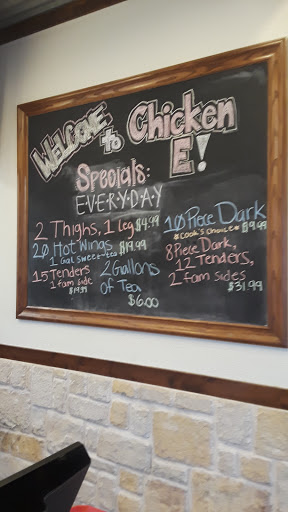 WELCOME to Chicken E!
Specials:
E·V·E·R·Y·D·A·Y
2 Thighs, 1 Leg $4.99
20 Hot Wings $19.99
1 Gal Sweet-tea
15 Tenders
1 fam side
$19.99
2 Gallons
of Tea
$6.00
10 Piece Dark
*Cook's Choice*
8 Piece Dark,
12 Tenders,
2 fam sides
$31.99